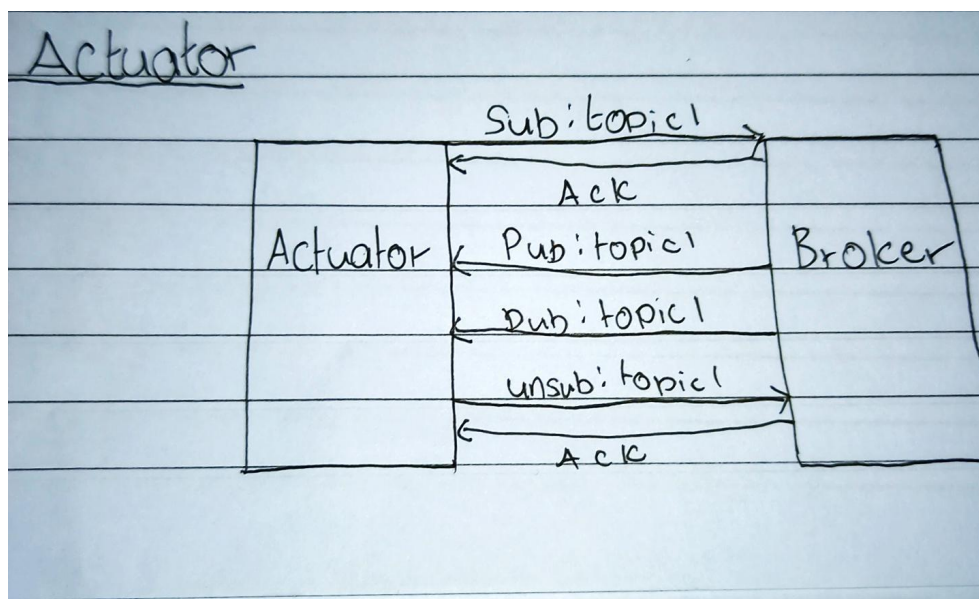 Actuator
Sub: topic1
Ack
Actuator
Pub: topic1
Broker
Pub: topic1
unsub: topic1
Ack